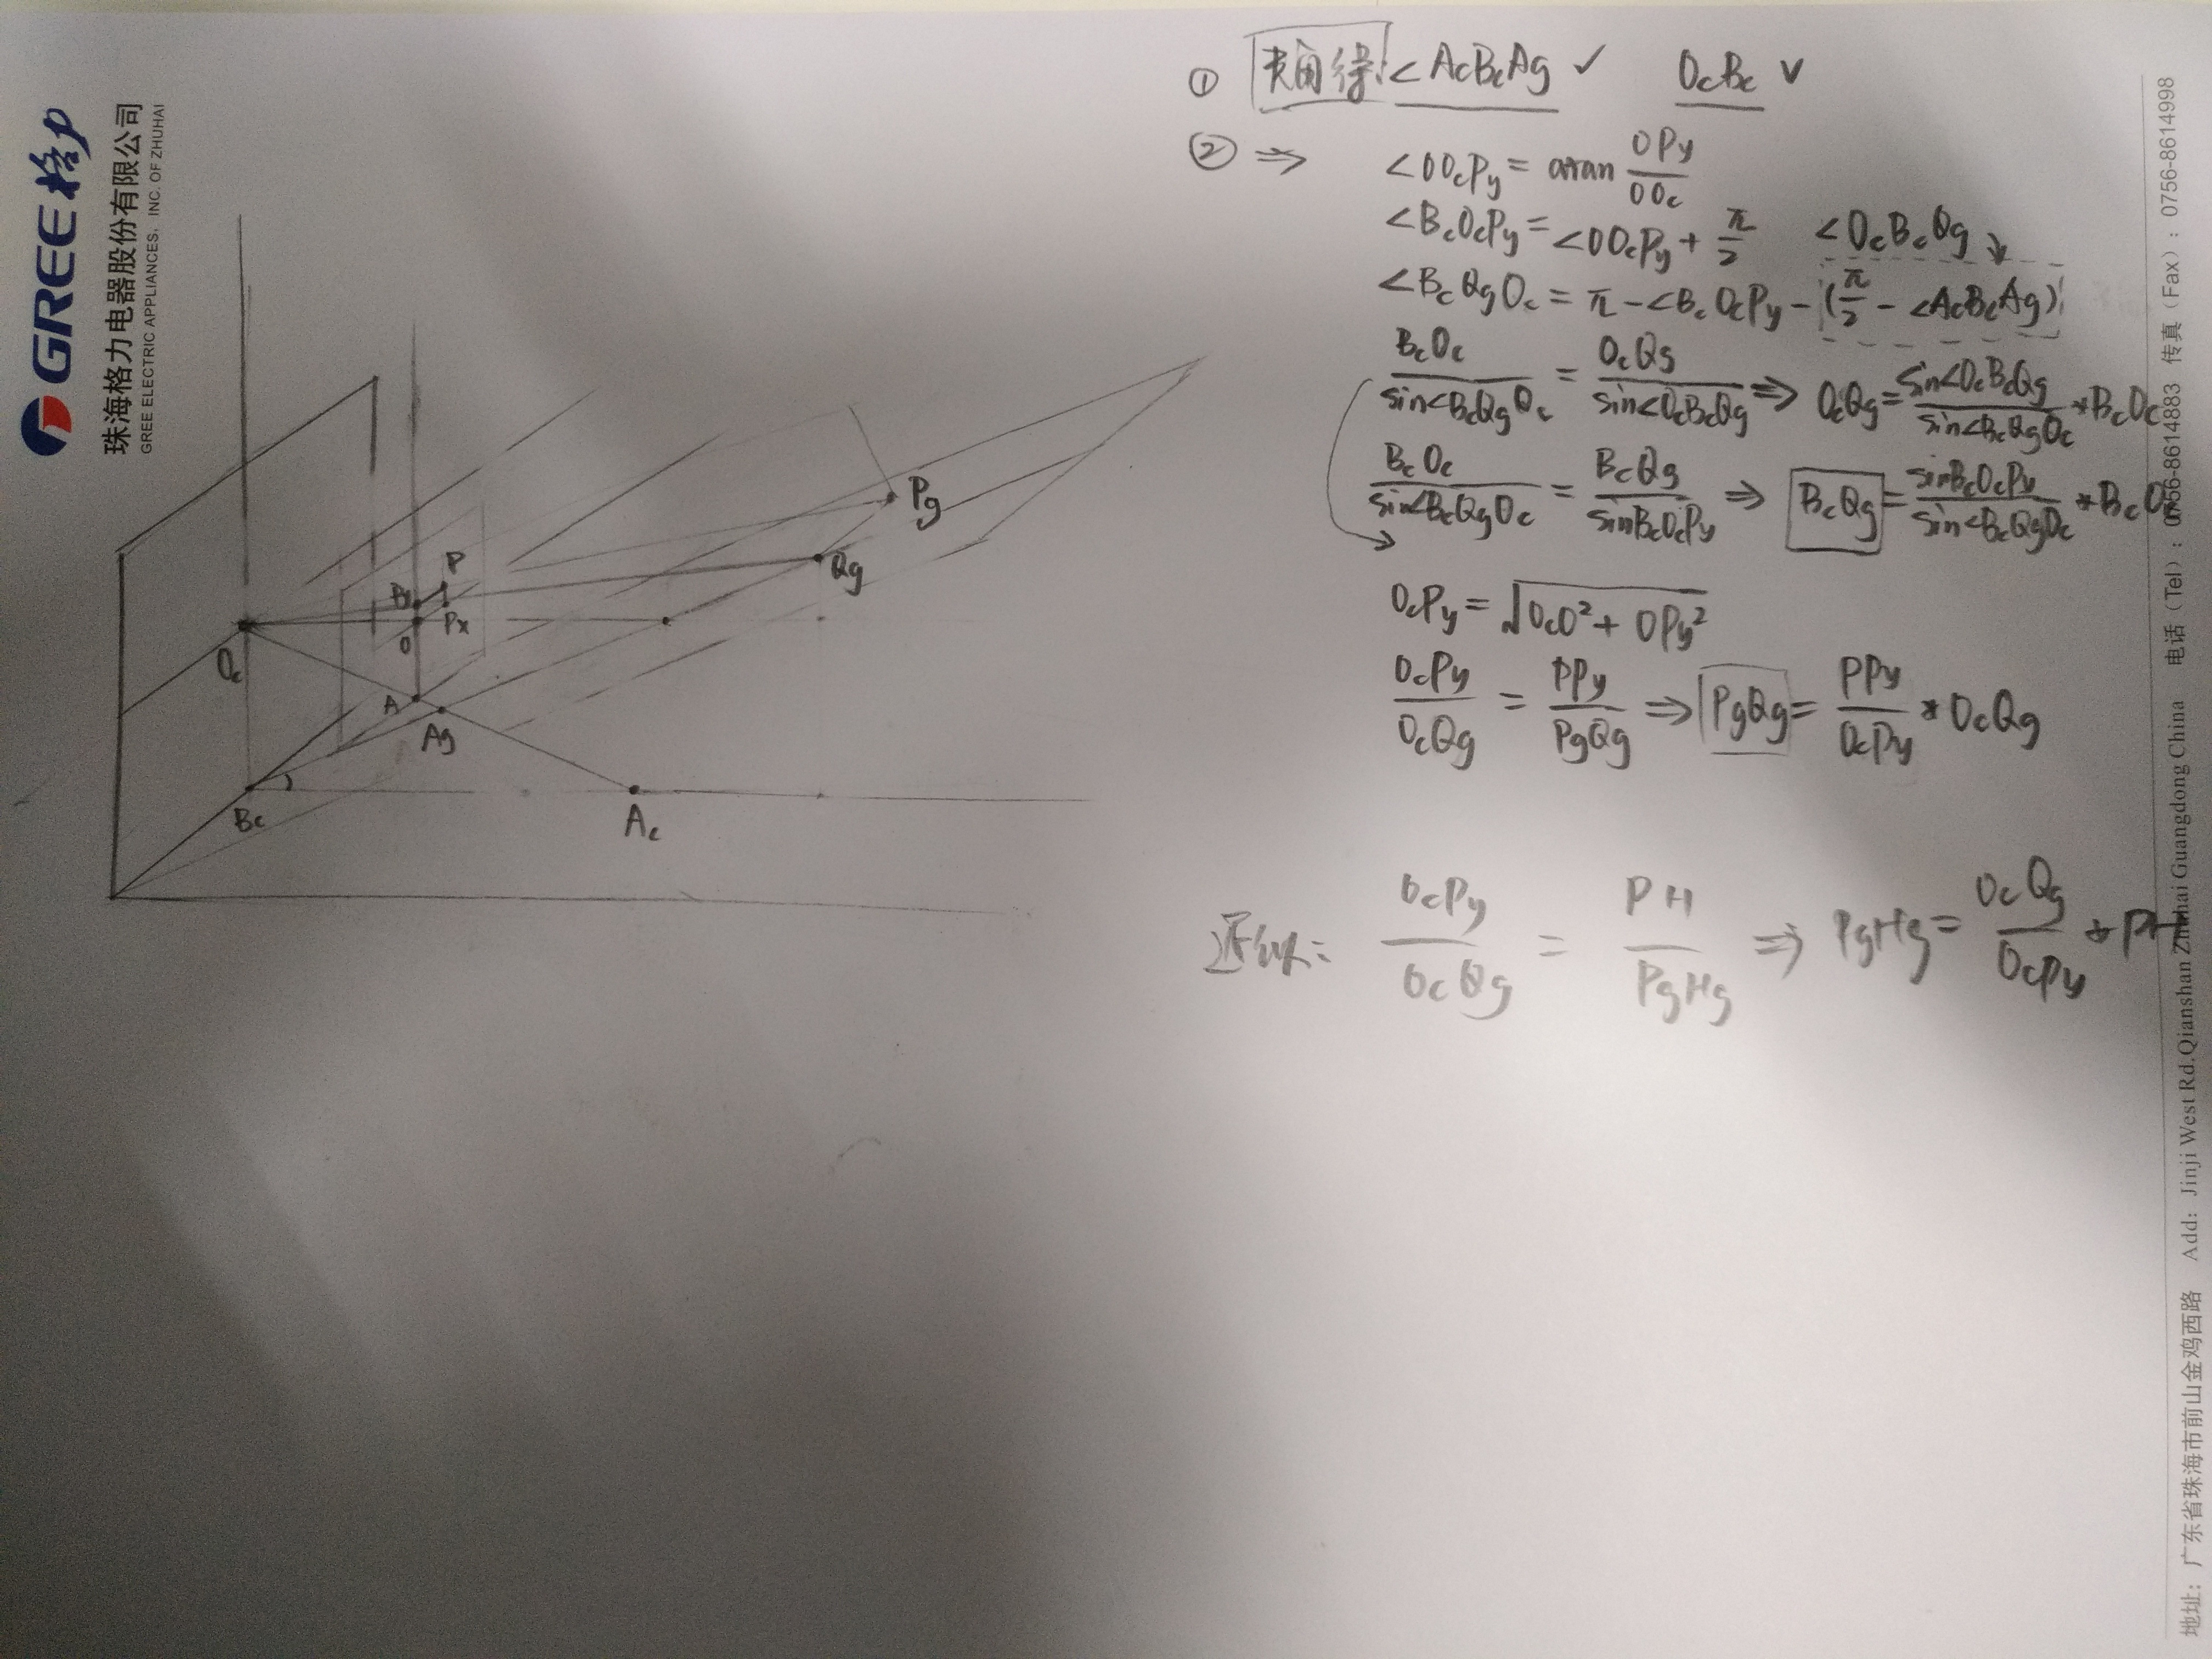 GREE 格力
珠海格力电器股份有限公司
GREE ELECTRIC APPLIANCES, INC. OF ZHUHAI
① <AcBcAg ✓ OcBc ✓
② ⇒ <OOcPy = arctan OPy / OOc
<BcOcPy = <OOcPy + π/2 <OcBcQg ↘
<BcQgOc = π - <BcOcPy - (π/2 - <AcBcAg)
BcOc / sin<BcQgOc = OcQg / sin<OcBcQg ⇒ OcQg = sin<OcBcQg / sin<BcQgOc * BcOc
BcOc / sin<BcQgOc = BcQg / sinBcOcPy ⇒ BcQg = sinBcOcPy / sin<BcQgOc * BcOc
OcPy = √OcO² + OPy²
OcPy / OcQg = PPy / PgQg ⇒ PgQg = PPy / OcPy * OcQg
近似: OcPy / OcQg = PH / PgHg ⇒ PgHg = OcQg / OcPy * PH
Pg
Qg
P
Px
O
Oc
A
Ag
Bc
Ac
地址：广东省珠海市前山金鸡西路 Add: Jinji West Rd.Qianshan Zhuhai Guangdong China 电话（Tel）：0756-8614883 传真（Fax）：0756-8614998